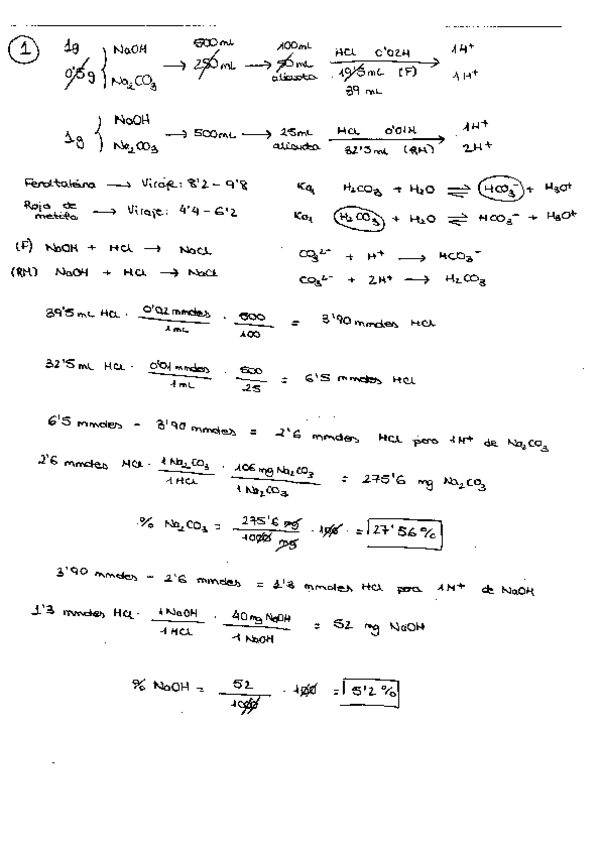 ① 1g { NaOH 500 mL 100 mL HCl 0'02M 1H⁺
0'5g { Na₂CO₃ → 250 mL → 50 mL alícuota 19'5 mL (F) → 1H⁺
39 mL
1g { NaOH Na₂CO₃ → 500 mL → 25 mL alícuota HCl 0'01M 32'5 mL (RM) → 1H⁺ 2H⁺
Fenolftaleína → Viraje: 8'2 - 9'8 Ka₁ H₂CO₃ + H₂O ⇌ HCO₃⁻ + H₃O⁺
Rojo de metilo → Viraje: 4'4 - 6'2 Ka₁ H₂CO₃ + H₂O ⇌ HCO₃⁻ + H₃O⁺
(F) NaOH + HCl → NaCl CO₃²⁻ + H⁺ → HCO₃⁻
(RM) NaOH + HCl → NaCl CO₃²⁻ + 2H⁺ → H₂CO₃
39'5 mL HCl · 0'02 mmoles / 1 mL · 500 / 100 = 3'90 mmoles HCl
32'5 mL HCl · 0'01 mmoles / 1 mL · 500 / 25 = 6'5 mmoles HCl
6'5 mmoles - 3'90 mmoles = 2'6 mmoles HCl para 1H⁺ de Na₂CO₃
2'6 mmoles HCl · 1 Na₂CO₃ / 1 HCl · 106 mg Na₂CO₃ / 1 Na₂CO₃ = 275'6 mg Na₂CO₃
% Na₂CO₃ = 275'6 mg / 1000 mg · 100 = 27'56 %
3'90 mmoles - 2'6 mmoles = 1'3 mmoles HCl para 1H⁺ de NaOH
1'3 mmoles HCl · 1 NaOH / 1 HCl · 40 mg NaOH / 1 NaOH = 52 mg NaOH
% NaOH = 52 / 1000 · 100 = 5'2 %